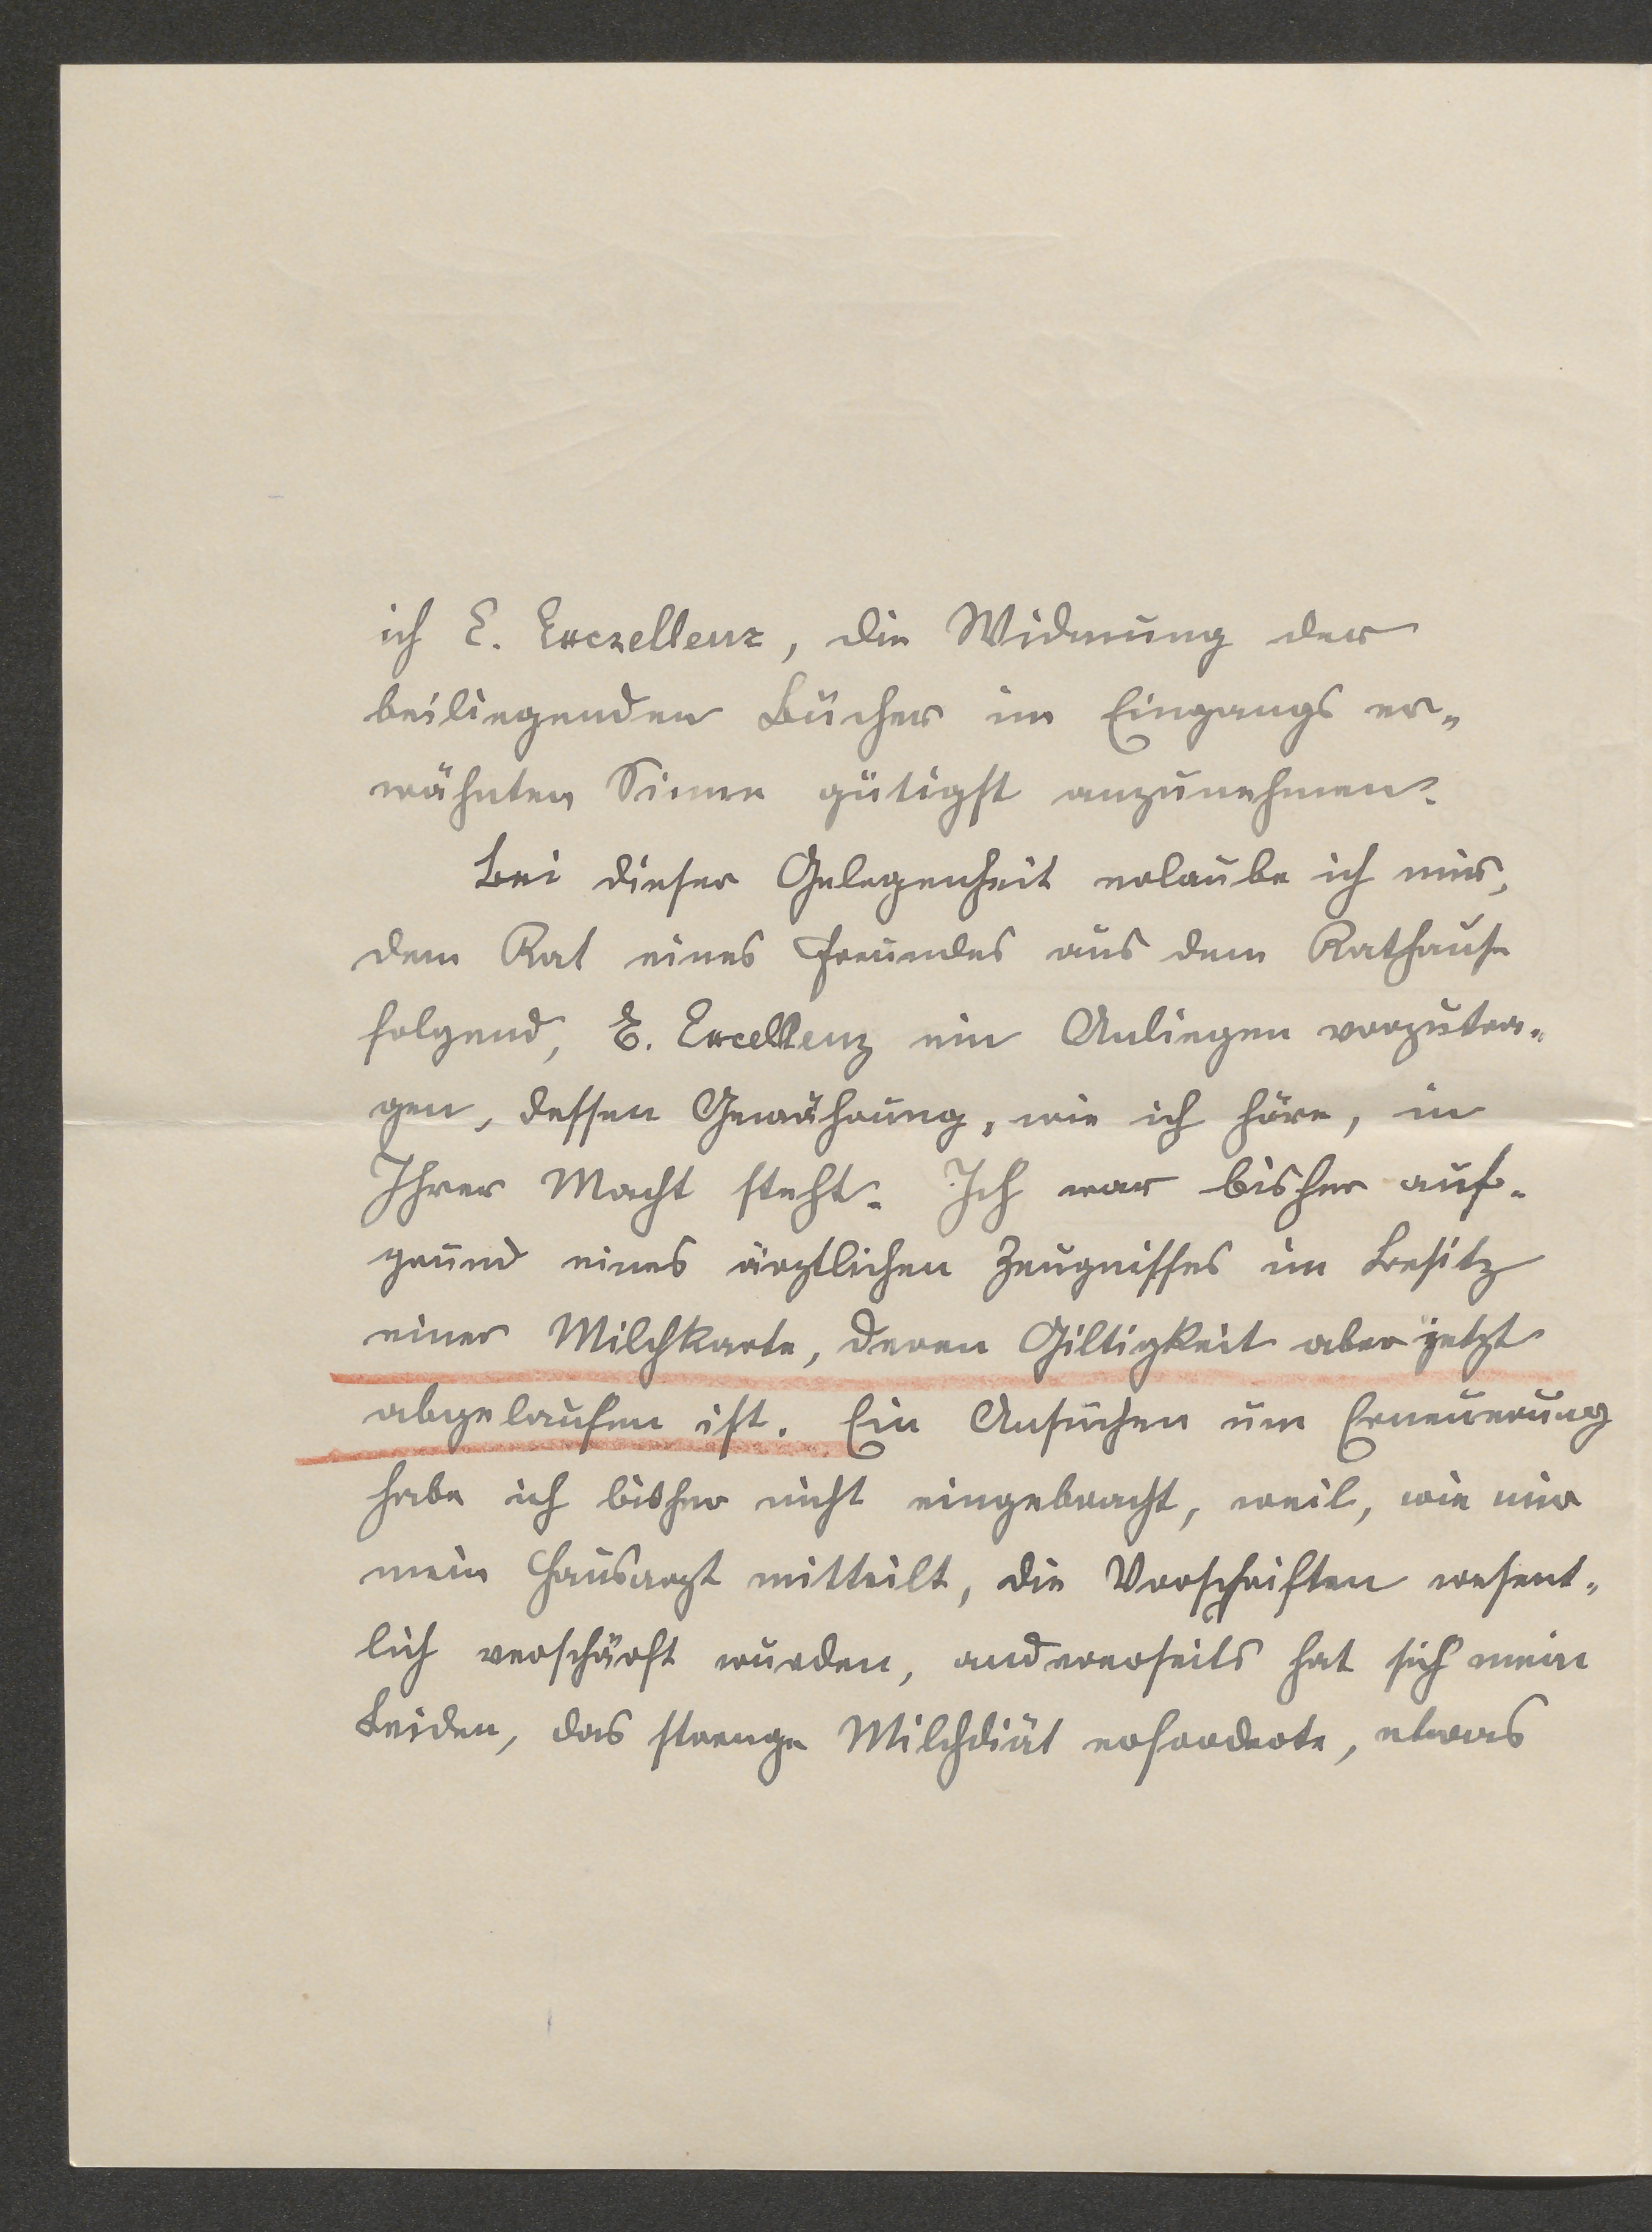 ich E. Exczellenz, die Widmung der
beiliegenden Bücher im Eingangs er-
wähnten Sinne gütigst anzunehmen.
Bei dieser Gelegenheit erlaube ich mir,
dem Rat eines Freundes aus dem Rathause
folgend, E. Excellenz ein Anliegen vorzutra-
gen, dessen Gewährung, wie ich höre, in
Ihrer Macht steht. Ich war bisher auf-
grund eines ärztlichen Zeugnisses im Besitz
einer Milchkarte, deren Giltigkeit aber jetzt
abgelaufen ist. Ein Ansuchen um Erneuerung
habe ich bisher nicht eingebracht, weil, wie mir
mein Hausarzt mitteilt, die Vorschriften wesent-
lich verschärft wurden, andererseits hat sich mein
Leiden, das strenge Milchdiät erforderte, etwas